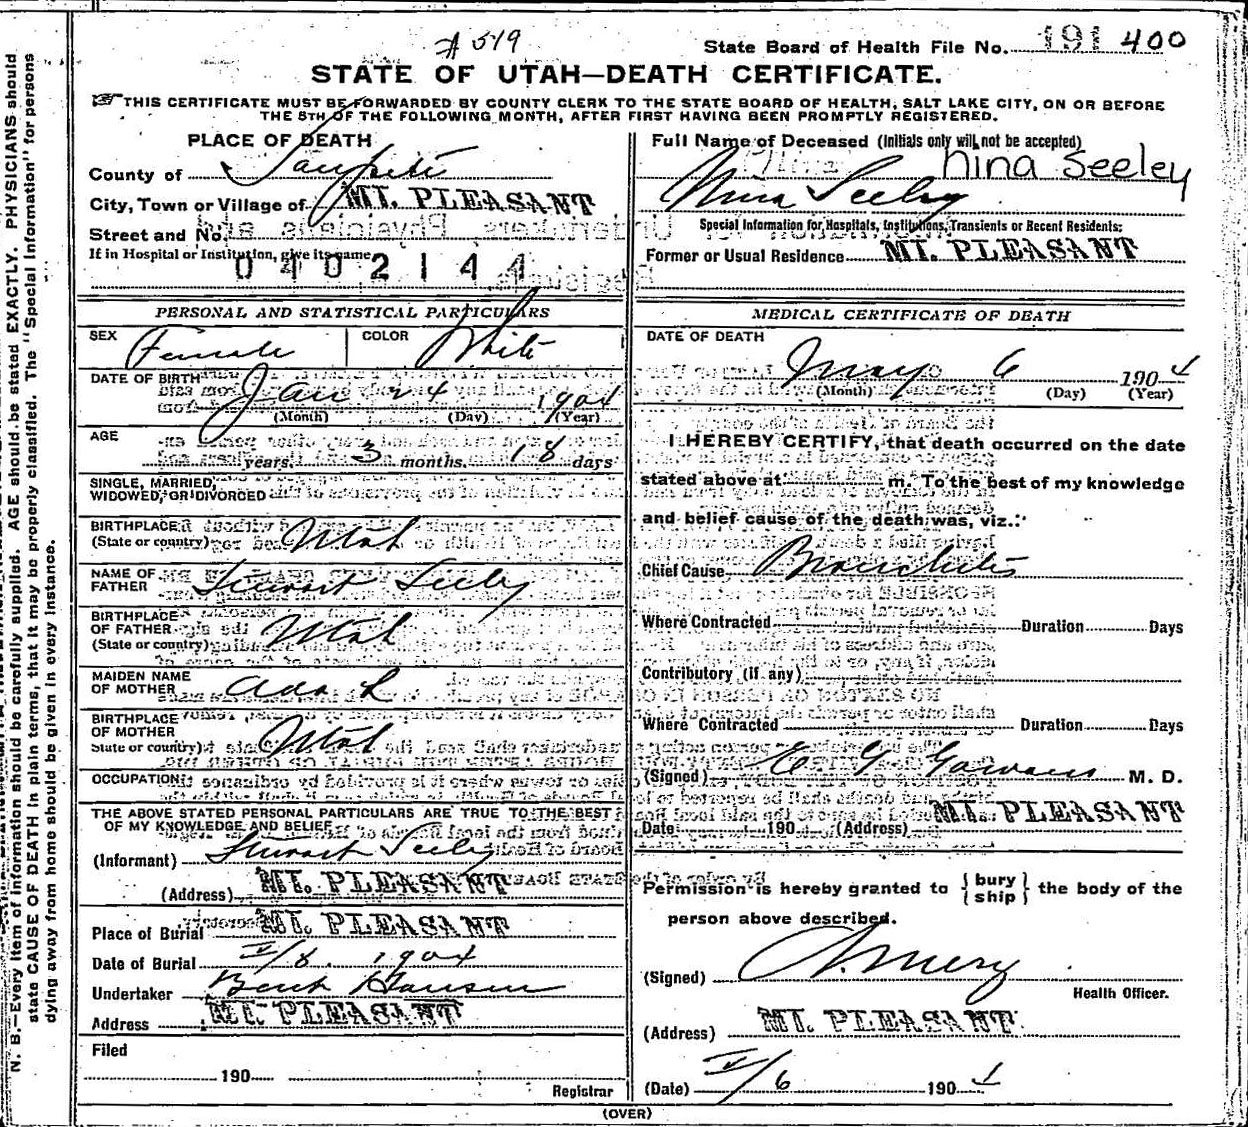 # 519
State Board of Health File No. 191 400
STATE OF UTAH—DEATH CERTIFICATE.
THIS CERTIFICATE MUST BE FORWARDED BY COUNTY CLERK TO THE STATE BOARD OF HEALTH, SALT LAKE CITY, ON OR BEFORE
THE 8TH OF THE FOLLOWING MONTH, AFTER FIRST HAVING BEEN PROMPTLY REGISTERED.
PLACE OF DEATH
County of Sanpete
City, Town or Village of MT. PLEASANT
Street and No.
If in Hospital or Institution, give its name
0402144
Full Name of Deceased (Initials only will not be accepted)
Nina Seeley
Nina Seeley
Special Information for Hospitals, Institutions, Transients or Recent Residents:
Former or Usual Residence MT. PLEASANT
PERSONAL AND STATISTICAL PARTICULARS
SEX Female COLOR White
DATE OF BIRTH Jan 24 1904
(Month) (Day) (Year)
AGE
years. 3 months. 18 days
SINGLE, MARRIED,
WIDOWED, OR DIVORCED
BIRTHPLACE
(State or country) Utah
NAME OF
FATHER Stewart Seeley
BIRTHPLACE
OF FATHER
(State or country) Utah
MAIDEN NAME
OF MOTHER Ada L
BIRTHPLACE
OF MOTHER
State or country) Utah
OCCUPATION
THE ABOVE STATED PERSONAL PARTICULARS ARE TRUE TO THE BEST
OF MY KNOWLEDGE AND BELIEF
(Informant) Stewart Seeley
(Address) MT. PLEASANT
Place of Burial MT. PLEASANT
Date of Burial V/8. 1904
Undertaker Bent Hansen
Address MT. PLEASANT
Filed
190
Registrar
MEDICAL CERTIFICATE OF DEATH
DATE OF DEATH
May 6 1904
(Month) (Day) (Year)
I HEREBY CERTIFY, that death occurred on the date
stated above at m. To the best of my knowledge
and belief cause of the death was, viz.:
Chief Cause Bronchitis
Where Contracted Duration Days
Contributory (if any)
Where Contracted Duration Days
(Signed) M. D.
Date 190 (Address) MT. PLEASANT
Permission is hereby granted to { bury
ship } the body of the
person above described.
(Signed)
Health Officer.
(Address) MT. PLEASANT
(Date) V/6 1904
(OVER)
N. B.—Every item of information should be carefully supplied. AGE should be stated EXACTLY. PHYSICIANS should
state CAUSE OF DEATH in plain terms, that it may be properly classified. The "Special Information" for persons
dying away from home should be given in every instance.